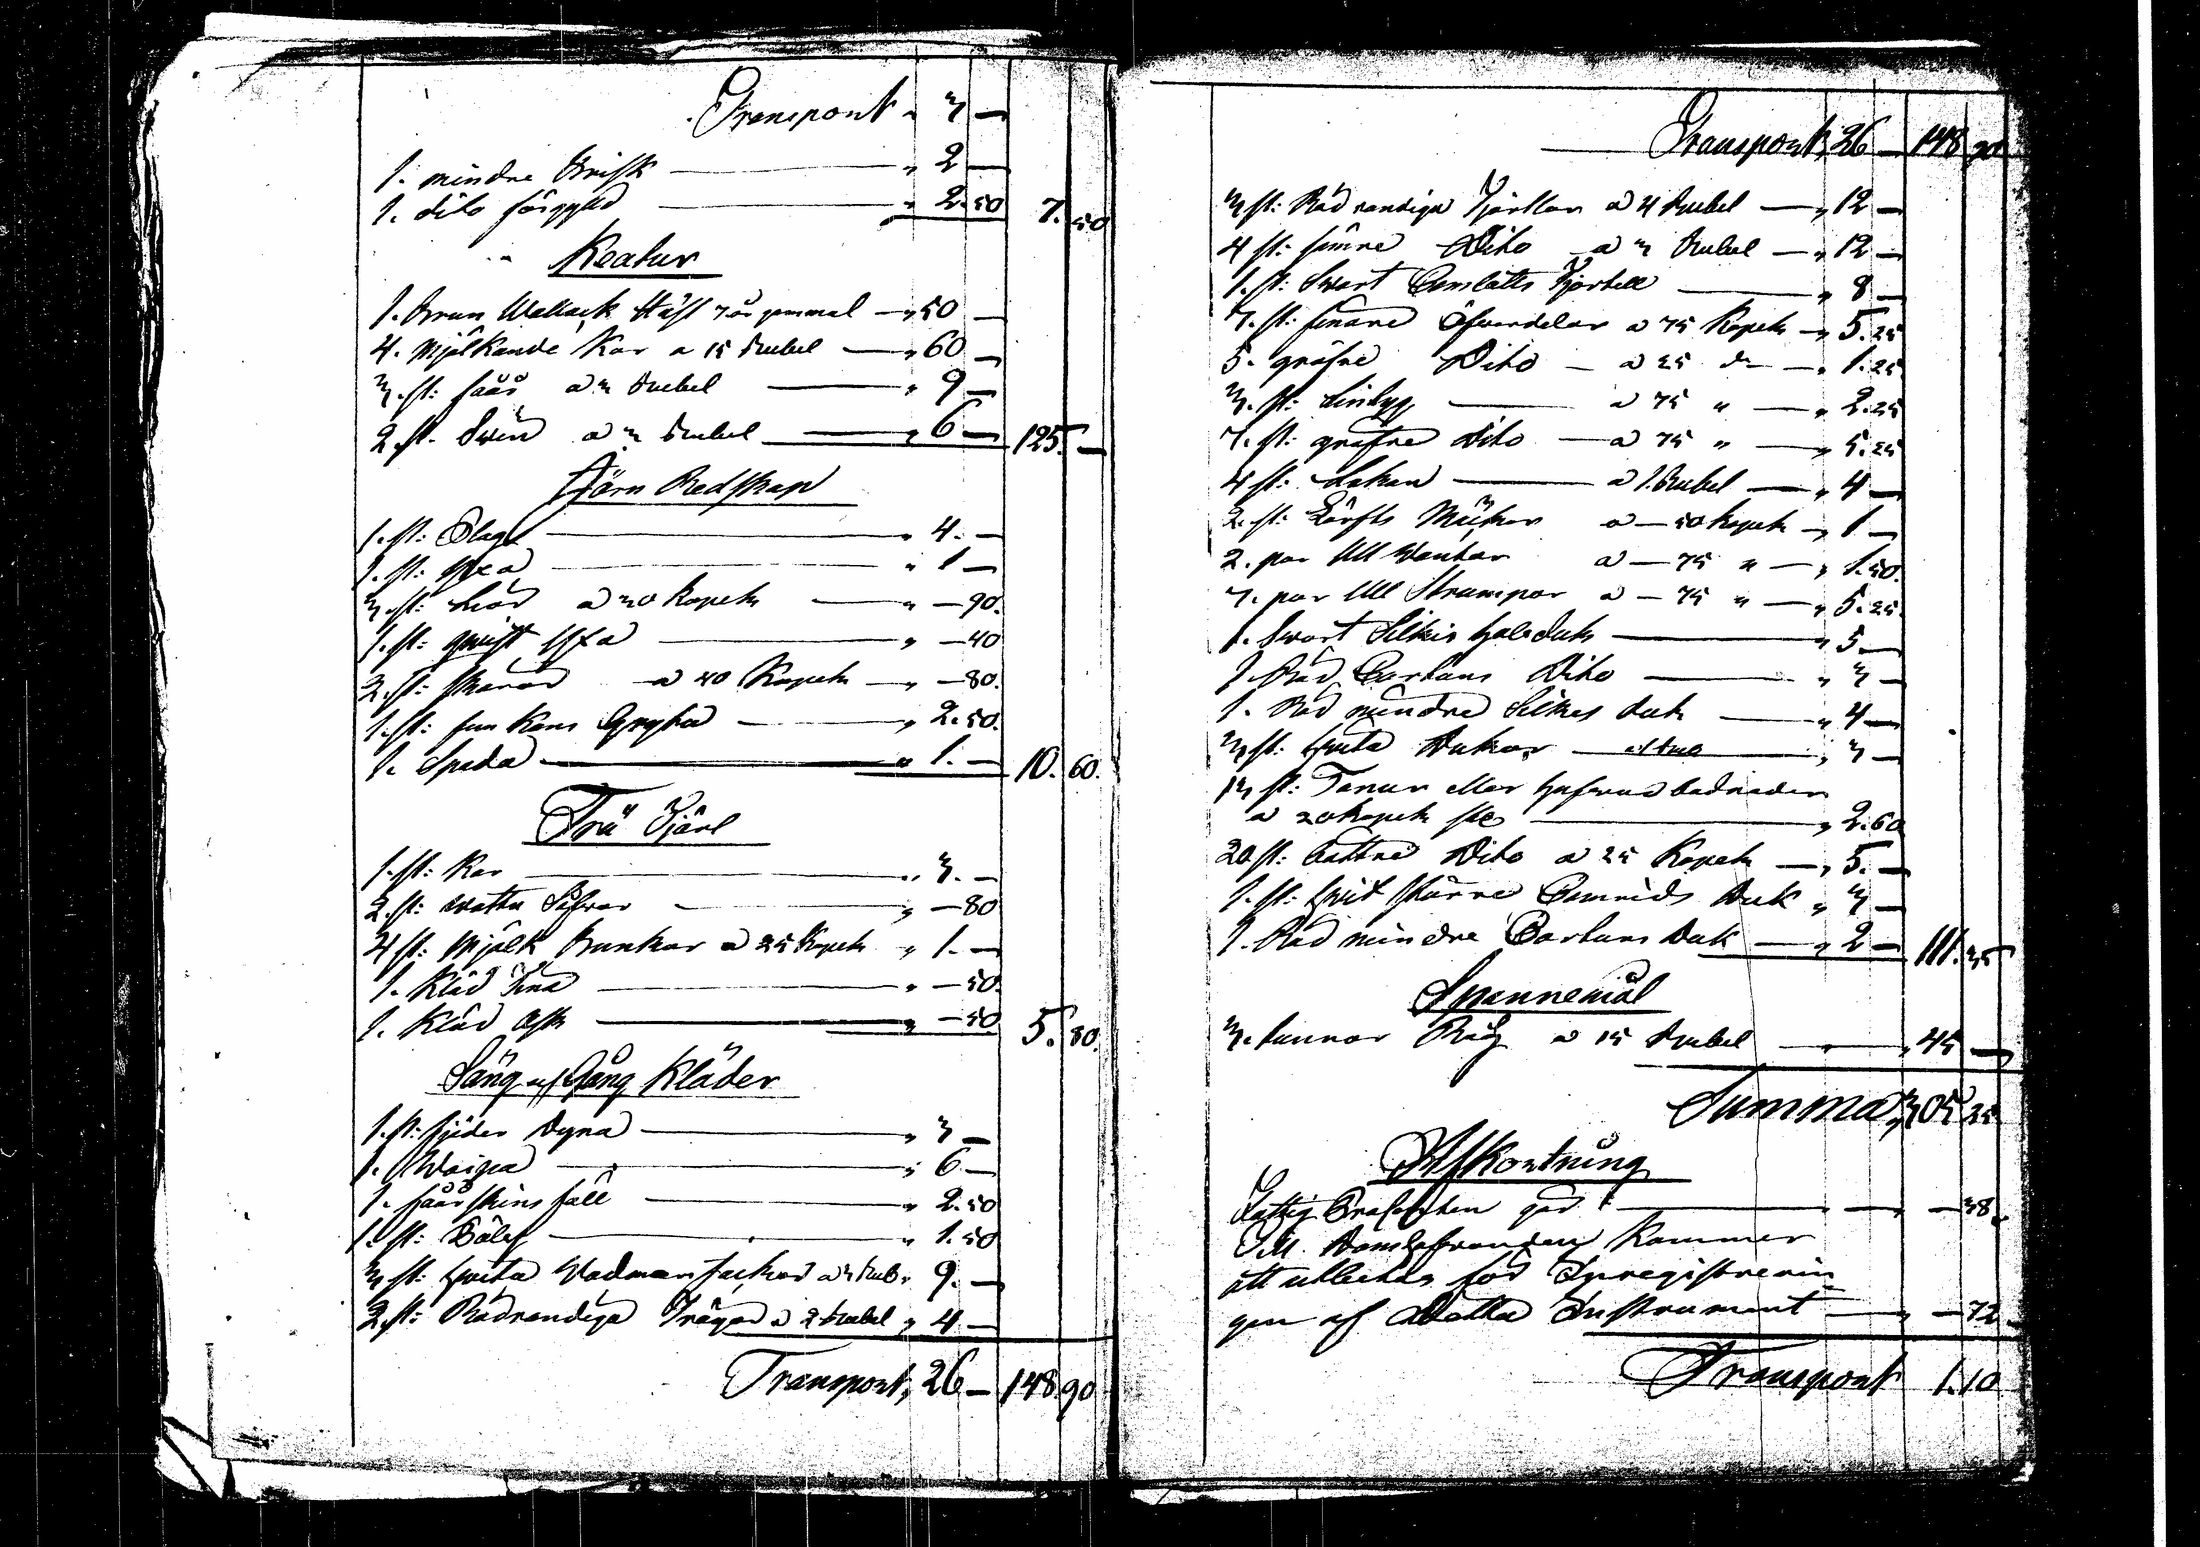 Transport „ 3 —
1. mindre Brisk — „ 2 —
1. dito förgyld — „ 2.50 7.50
Keatur
1. Brun Wallack Häst 7 år gammal — „ 50 —
4. Mjölkande Kor a 15 Rubel — „ 60 —
3. st: fåår a 3 Rubel — „ 9 —
2. st. Swin a 3 Rubel — „ 6 — 125. —
Järn Redskap
1. st: Plog — „ 4. —
1. st: Yxa — „ 1 —
3. st: Liar a 30 Kopek — „ — 90.
1. st: Yxa — „ — 40
2. st: Skäror a 40 Kopek — „ — 80.
1. st: fem Kans Gryta — „ 2.50.
1. Spada — „ 1. — 10.60.
Trä Kjäril
1. st: Kar — „ 3. —
2. st: wattu Såfwar — „ — 80
4 st: Mjölk Bunkar a 25 Kopek „ 1. —
1. Kläd Tina — „ — 50.
1. Kläd Ask — „ — 50 5.80.
Säng och Gång Kläder
1. st: fjäder Dyna — „ 3 —
1. Waipa — „ 6 —
1. fåårskins fäll — „ 2.50
1. st: Bålst — „ 1.50
3 st: Hwita Wadmans Jackor a 3 Rub. „ 9. —
2. st: Rödrandiga Tröyor a 2 Rubel „ 4 —
Transport, 26 — 148.90
Transport, 26 — 148 90
3 st: Röd randiga Kjortlar a 4 Rubel — „ 12 —
4 st: finare Dito a 3 Rubel — „ 12 —
1. st: Swart Camlåtts Kjortell — „ 8 —
7. st: finare Öfwerdelar a 75 Kopek — „ 5.25
5. gröfre Dito — a 25 d:o — „ 1.25
3. st: Lintyg — a 75 „ — „ 2.25
7. st: gröfre Dito — a 75 „ — „ 5.25
4 st: Lakan — a 1. Rubel — „ 4 —
2. st: Lärfts Mückor a — 50 Kopek — „ 1 —
2. par Ull Wantar a — 75 „ — „ 1.50.
7. par Ull Strumpor a — 75 „ — „ 5.25.
1. Swart Silkis halsduk — „ 5 —
1. Röd Cartuns Dito — „ 3 —
1. Röd mindre Silkes duk — „ 4 —
3 st: Hwita Dukar — a 1 Rub — „ 3 —
13 st: Tanur eller hufwud badnader
a 20 Kopek st: — „ 2.60
20 st: battre Dito a 25 Kopek — „ 5. —
1. st: hwit större Camrids Duk „ 3 —
1. Röd mindre Cartuns Duk — „ 2 — 111.35
Spannemål
3. tunnor Råg a 15 Rubel — „ 45 —
Summa, 305 25
Afkortning
Fattig Procenten gör — — 38.
Kammer
att utbetalas för Inregistrerin
gen af Detta Instrument — „ — 72
Transport 1.10